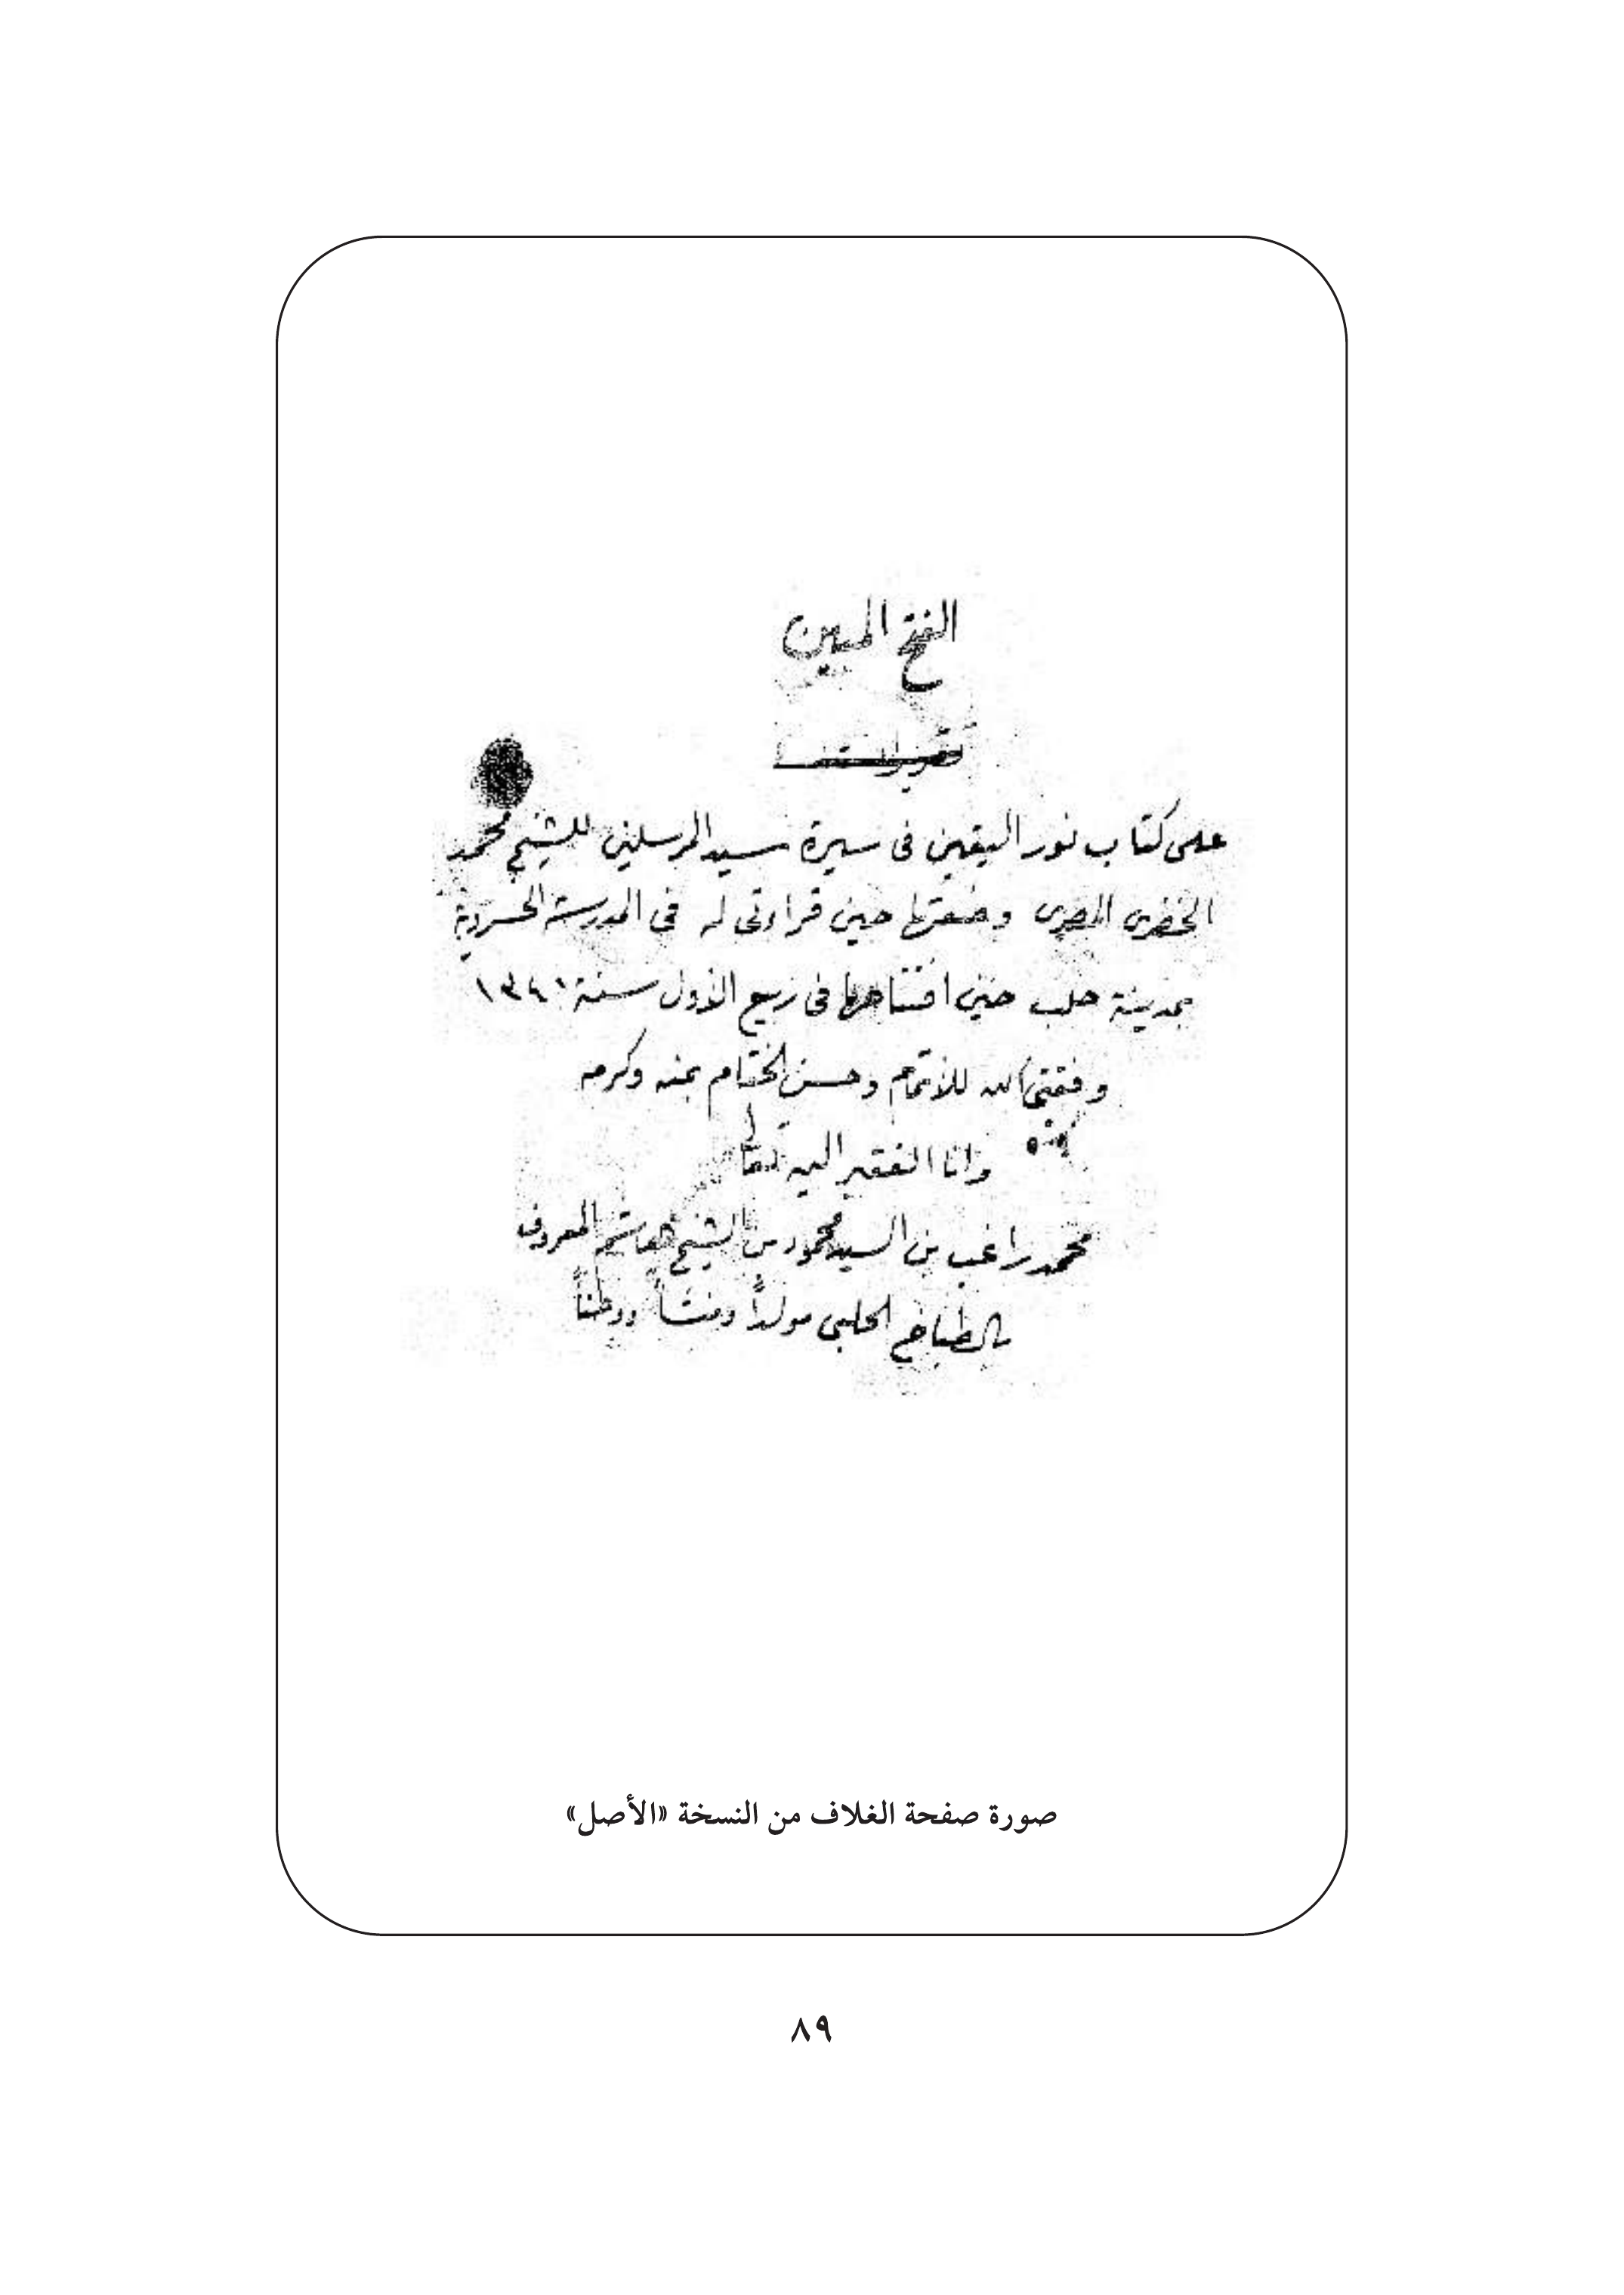 الفتح المبين
على كتاب نور اليقين فى سيرة سيد المرسلين للشيخ محمد
الخضرى المصرى وضعتها حين قراءتى له فى المدرسة الخسروية
بمدينة حلب حين افتتاحها فى ربيع الأول سنة ١٣٤١
وفقنى الله للأتمام وحسن الختام بمنه وكرمه
وانا الفقير اليه تعالى
محمد راغب بن السيد محمود بن الشيخ هاشم المعروف
بالطباخ الحلبى مولداً ومنشأ ووطناً
صورة صفحة الغلاف من النسخة «الأصل»
٨٩